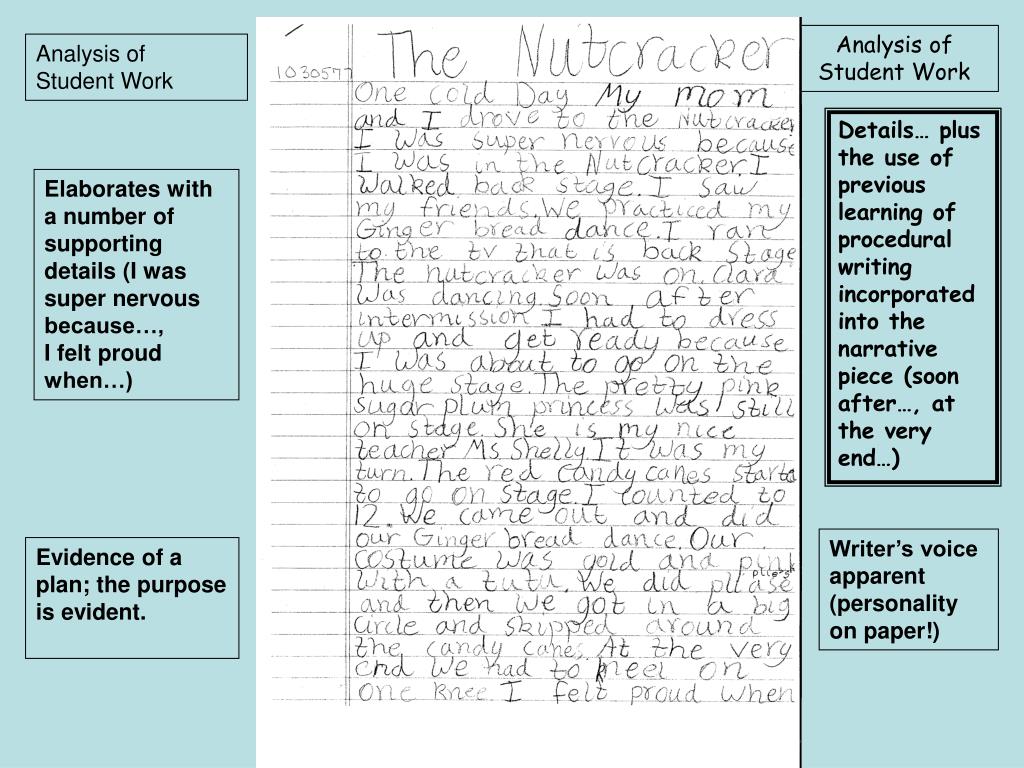 Analysis of
Student Work
Elaborates with
a number of
supporting
details (I was
super nervous
because…,
I felt proud
when…)
Evidence of a
plan; the purpose
is evident.
The Nutcracker
1030577
One cold Day My mom
and I drove to the Nutcracker
I was super nervous because
I was in the Nutcracker.I
walked back stage.I saw
my friends.We practiced my
Ginger bread dance.I ran
to the tv that is back stage
The nutcracker was on.Clara
was dancing.Soon after
intermission I had to dress
up and get ready because
I was about to go on the
huge stage.The pretty pink
sugar plum princess was still
on stage.She is my nice
teacher Ms.Shelly.It was my
turn.The red candy canes starts
to go on stage.I counted to
12.We came out and did
our Ginger bread dance.Our
costume was gold and pink
with a tutu.We did
and then we got in a big
circle and skipped around
the candy canes.At the very
end we had to kneel on
one knee.I felt proud when
Analysis of
Student Work
Details… plus
the use of
previous
learning of
procedural
writing
incorporated
into the
narrative
piece (soon
after…, at
the very
end…)
Writer’s voice
apparent
(personality
on paper!)